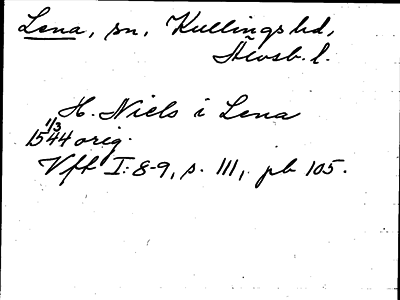 Lena, sn, Kullings hd,
Älvsb. l.
H. Niels i Lena
1/3
1544 orig.
Vft I: 8-9, s. 111, pb 105.